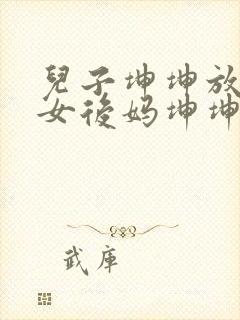 兒子坤坤放
女後妈坤坤
武庫